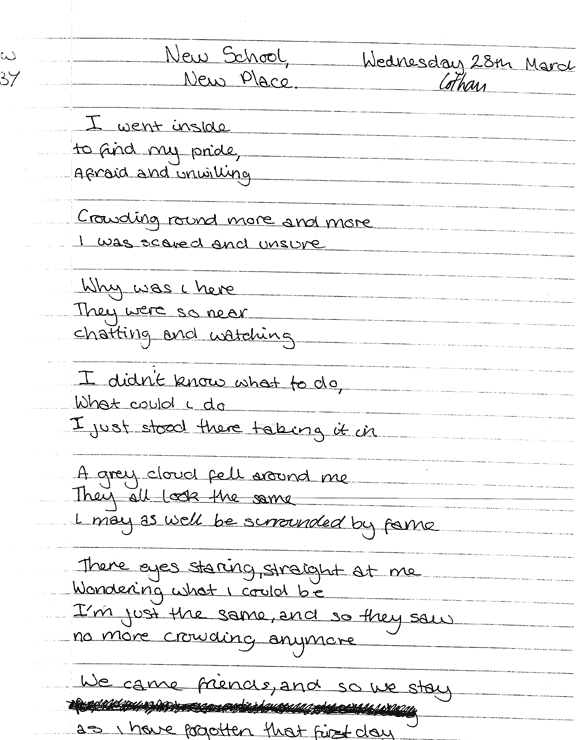 New School,
Wednesday 28th March
New Place.
I went inside
to find my pride,
Afraid and unwilling
Crowding round more and more
I was scared and unsure
Why was i here
They were so near
chatting and watching
I didn't know what to do,
What could i do
I just stood there taking it in
A grey cloud fell around me
They all look the same
I may as well be surrounded by fame
There eyes staring, straight at me
Wondering what i could be
I'm just the same, and so they saw
no more crowding anymore
We came friends, and so we stay
as i have forgotten that first day